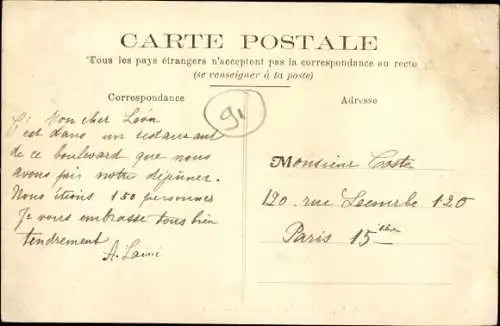 CARTE POSTALE
Tous les pays étrangers n'acceptent pas la correspondance au recto
(se renseigner à la poste)
Correspondance
Adresse
91
Mon cher Léon
C'est dans un restaurant
de ce boulevard que nous
avons pris notre déjeuner.
Nous étions 150 personnes
Je vous embrasse tous bien
tendrement
A. Lainé
Monsieur Coste
120 rue Lecourbe 120
Paris 15